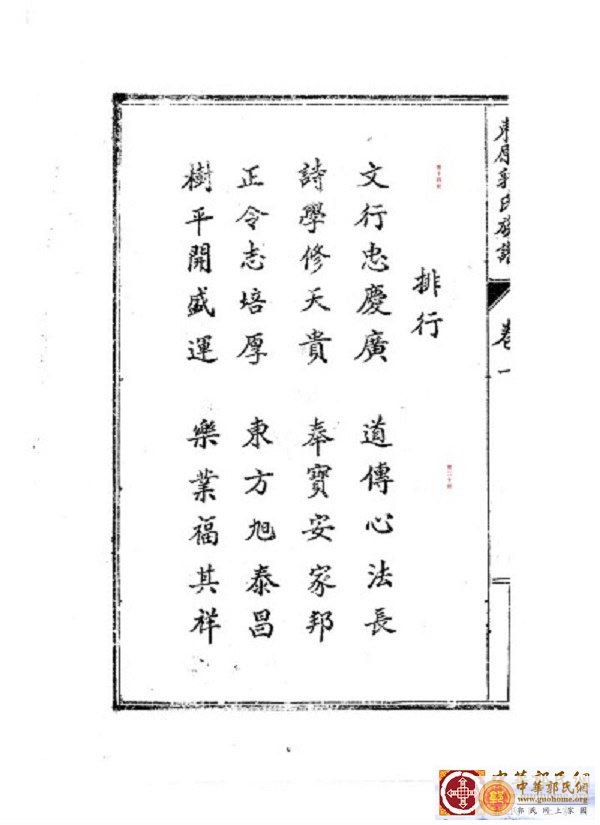 東原郭氏族譜
卷一
排行
文行忠慶廣 道傳心法長
詩學修天貴 奉寶安家邦
正令志培厚 東方旭泰昌
樹平開盛運 樂業福其祥
中華郭氏網
中華郭氏網
www.guohome.org
郭氏网上家園